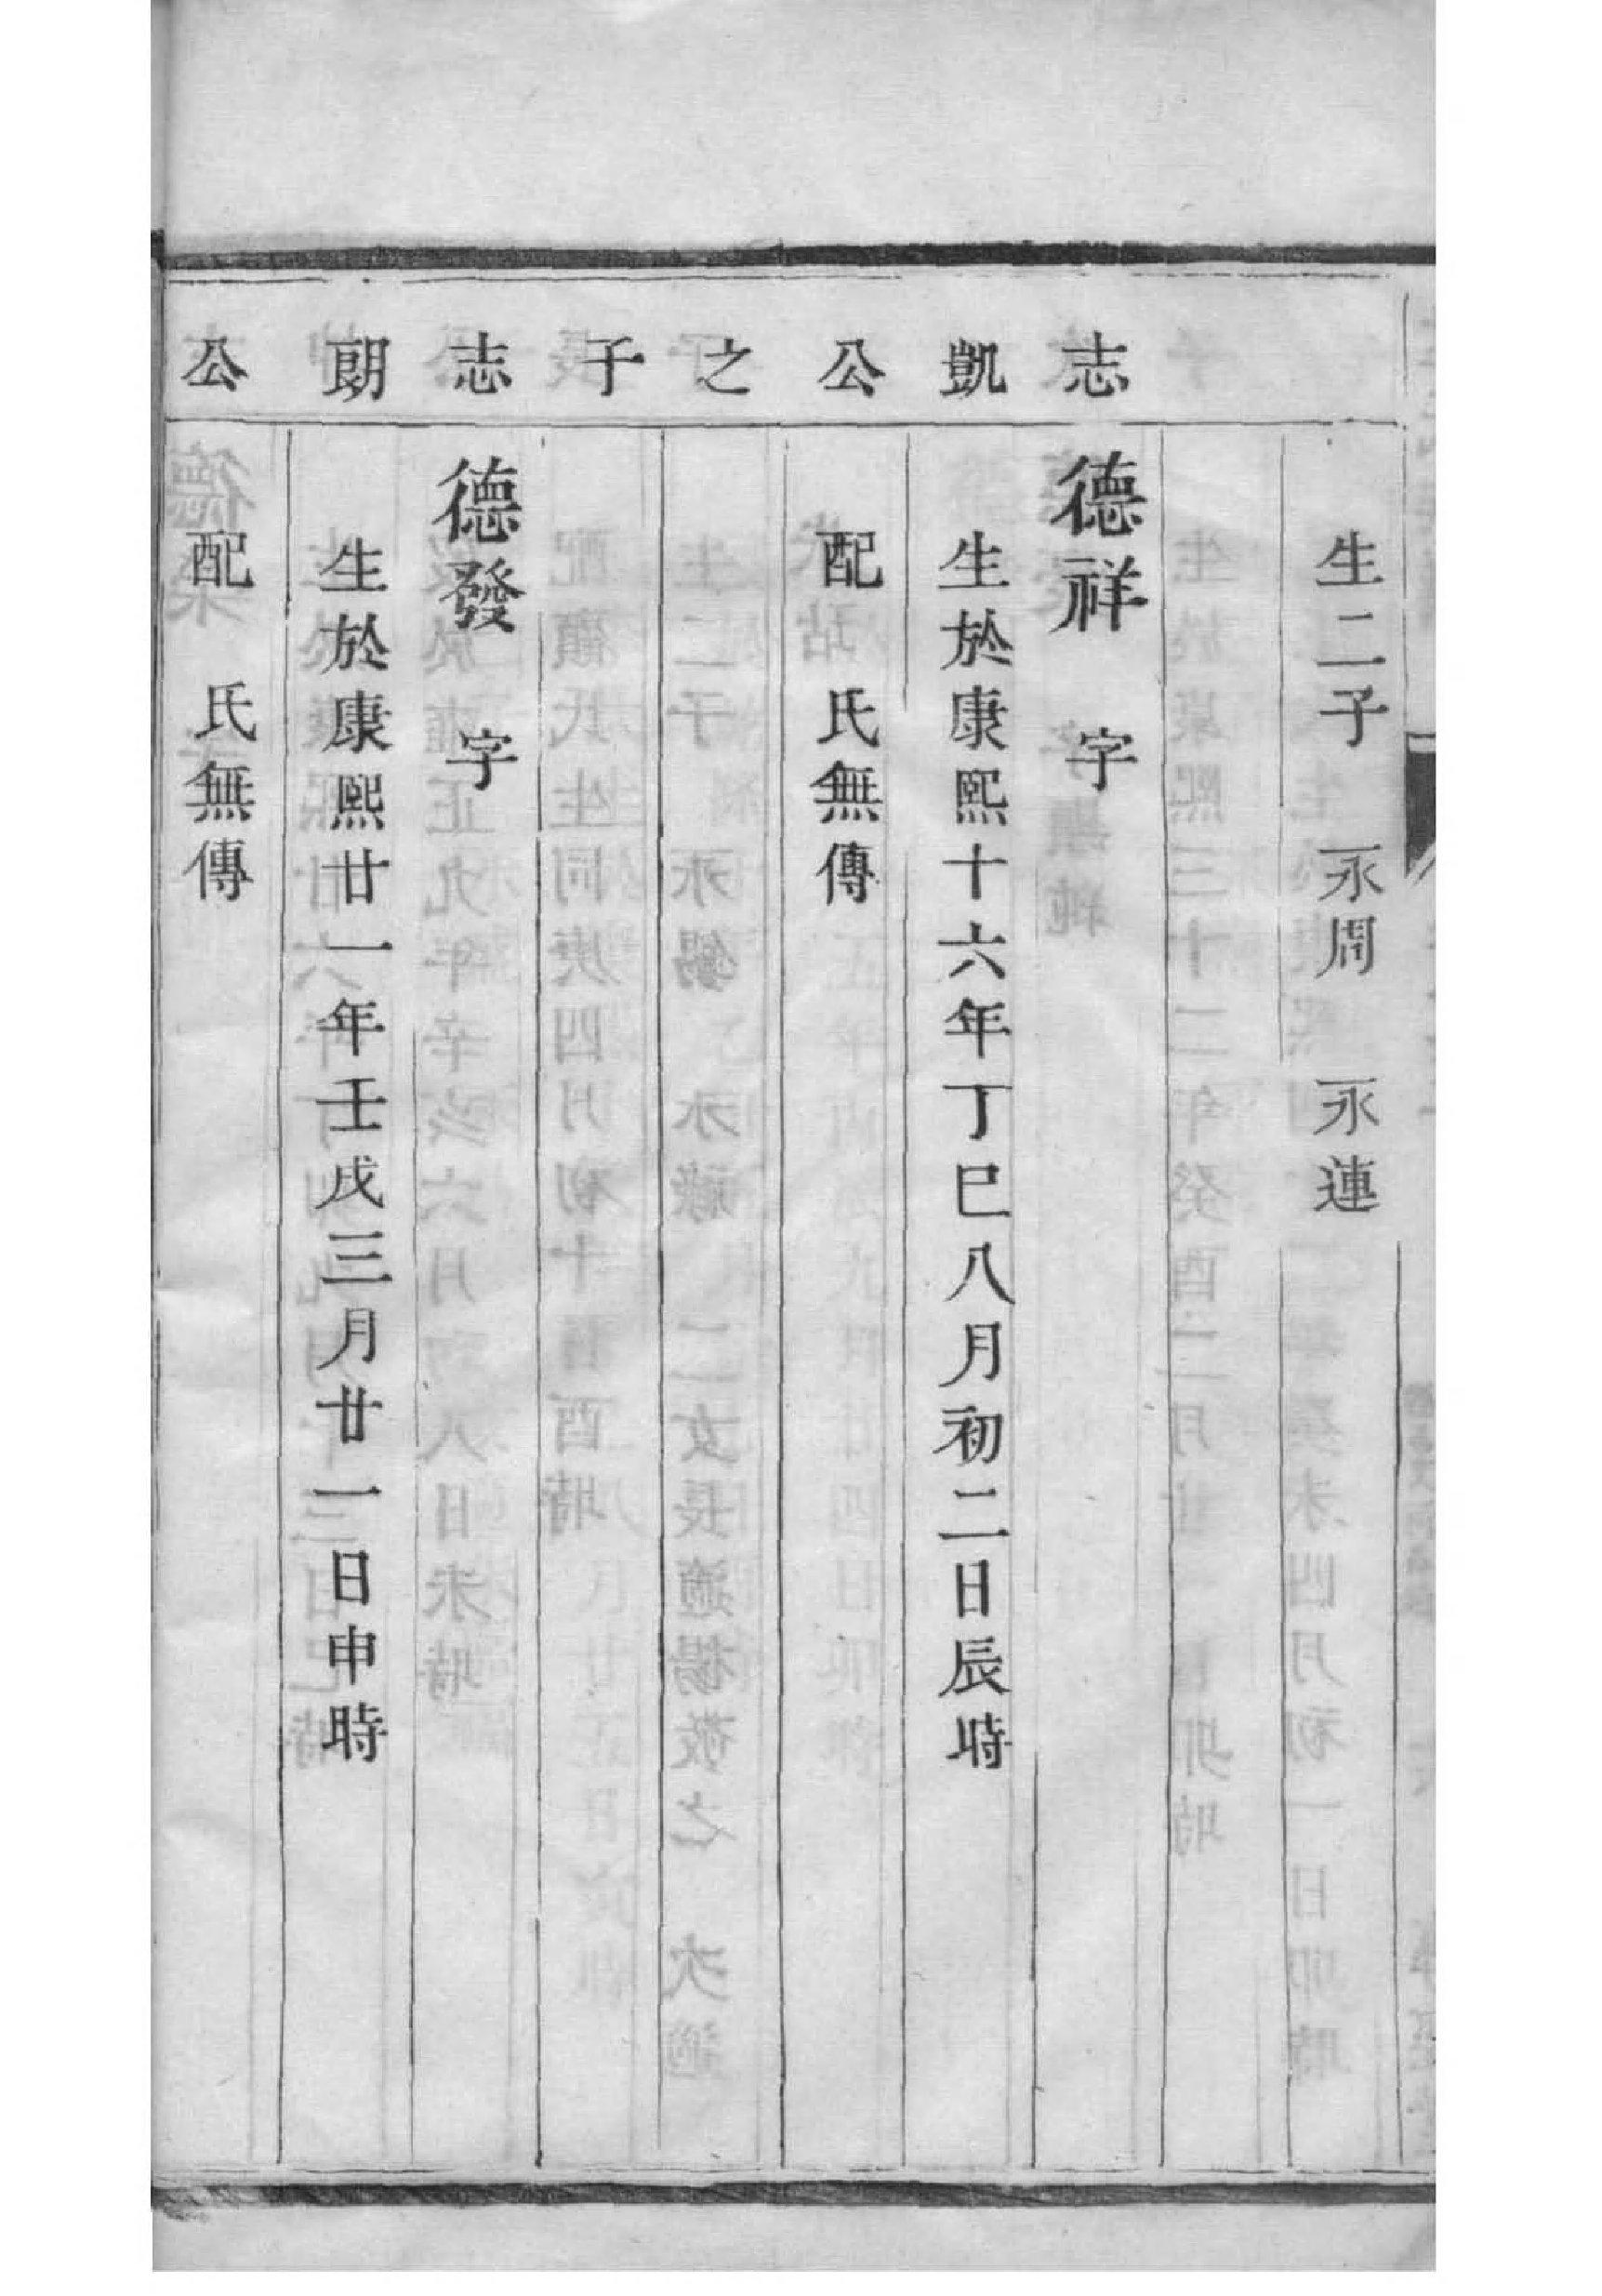 生二子　永周　永連
志凱公之子
德祥　字
生於康熙十六年丁巳八月初二日辰時
配　氏無傳
志朗公
德發　字
生於康熙廿一年壬戌三月廿一日申時
配　氏無傳